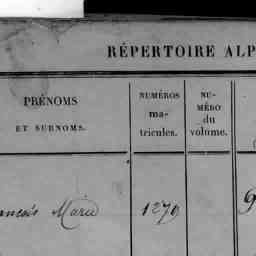 RÉPERTOIRE ALP
PRÉNOMS
ET SURNOMS.
NUMÉROS
ma-
tricules.
NU-
MÉRO
du
volume.
ancois Marie 1279